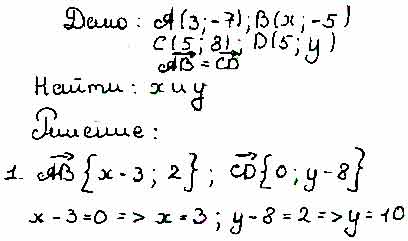 Дано: A(3;-7); B(x;-5)
C(5; 8); D(5; y)
A⃗B⃗ = C⃗D⃗
Найти: x и y
Решение:
1. A⃗B⃗ {x-3; 2}; C⃗D⃗ {0; y-8}
x-3=0 => x=3; y-8=2 => y=10